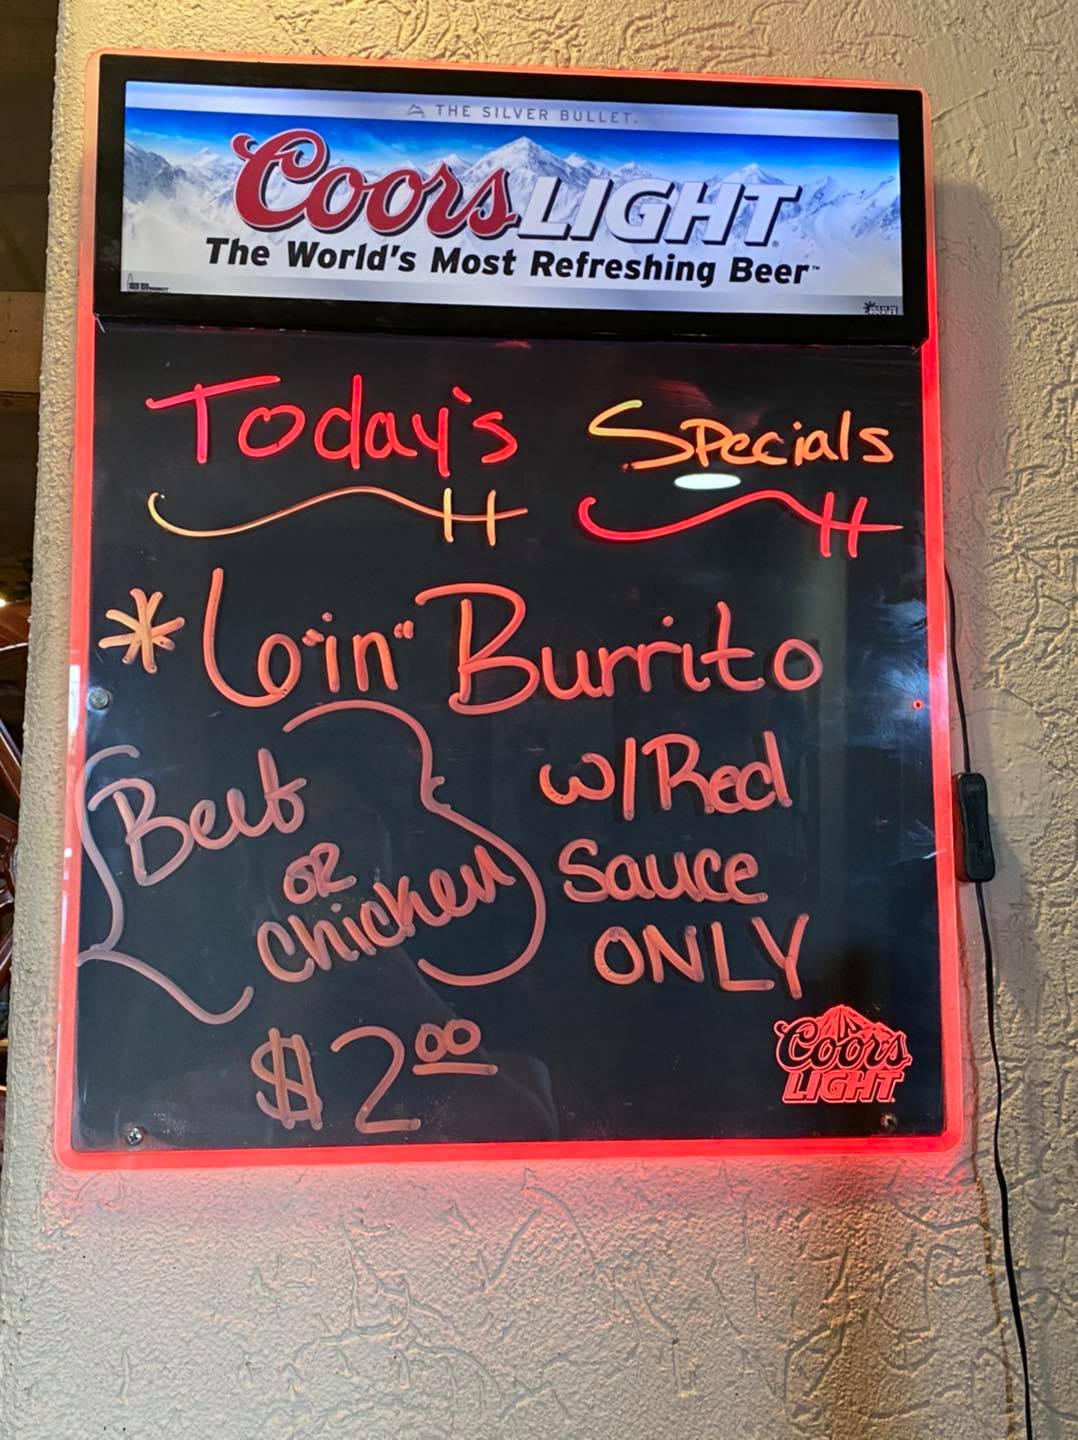 THE SILVER BULLET.
Coors LIGHT
The World's Most Refreshing Beer™
Today's Specials
* 6"in" Burrito
(Beef
or
Chicken)
w/Red
Sauce
ONLY
$2.00
Coors
LIGHT